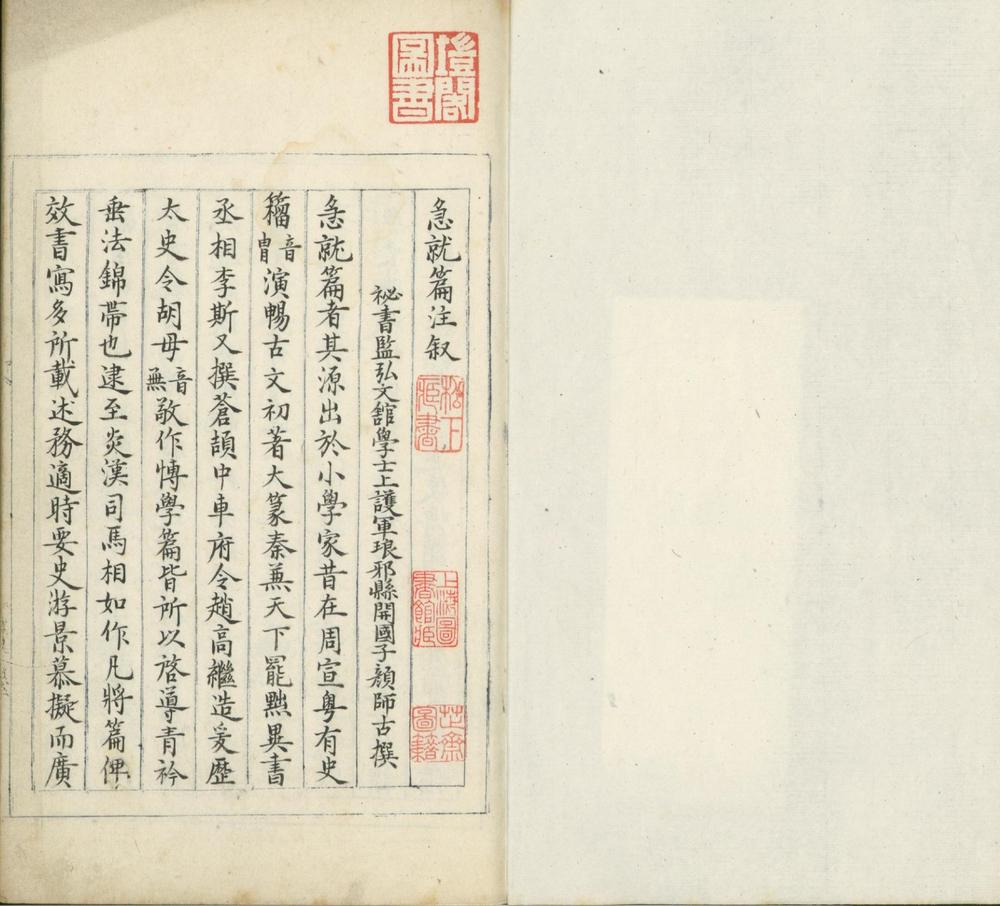 圖書
急就篇注叙
松下藏書
上海圖書館藏
芷齋圖籍
祕書監弘文舘學士上護軍琅邪縣開國子顏師古撰
急就篇者其源出於小學家昔在周宣粤有史
籀音冑演暢古文初著大篆秦兼天下罷黜異書
丞相李斯又撰蒼頡中車府令趙高繼造爰歷
太史令胡毋音無敬作愽學篇皆所以啓導青衿
垂法錦帶也逮至炎漢司馬相如作凡將篇俾
效書寫多所載述務適時要史游景慕擬而廣